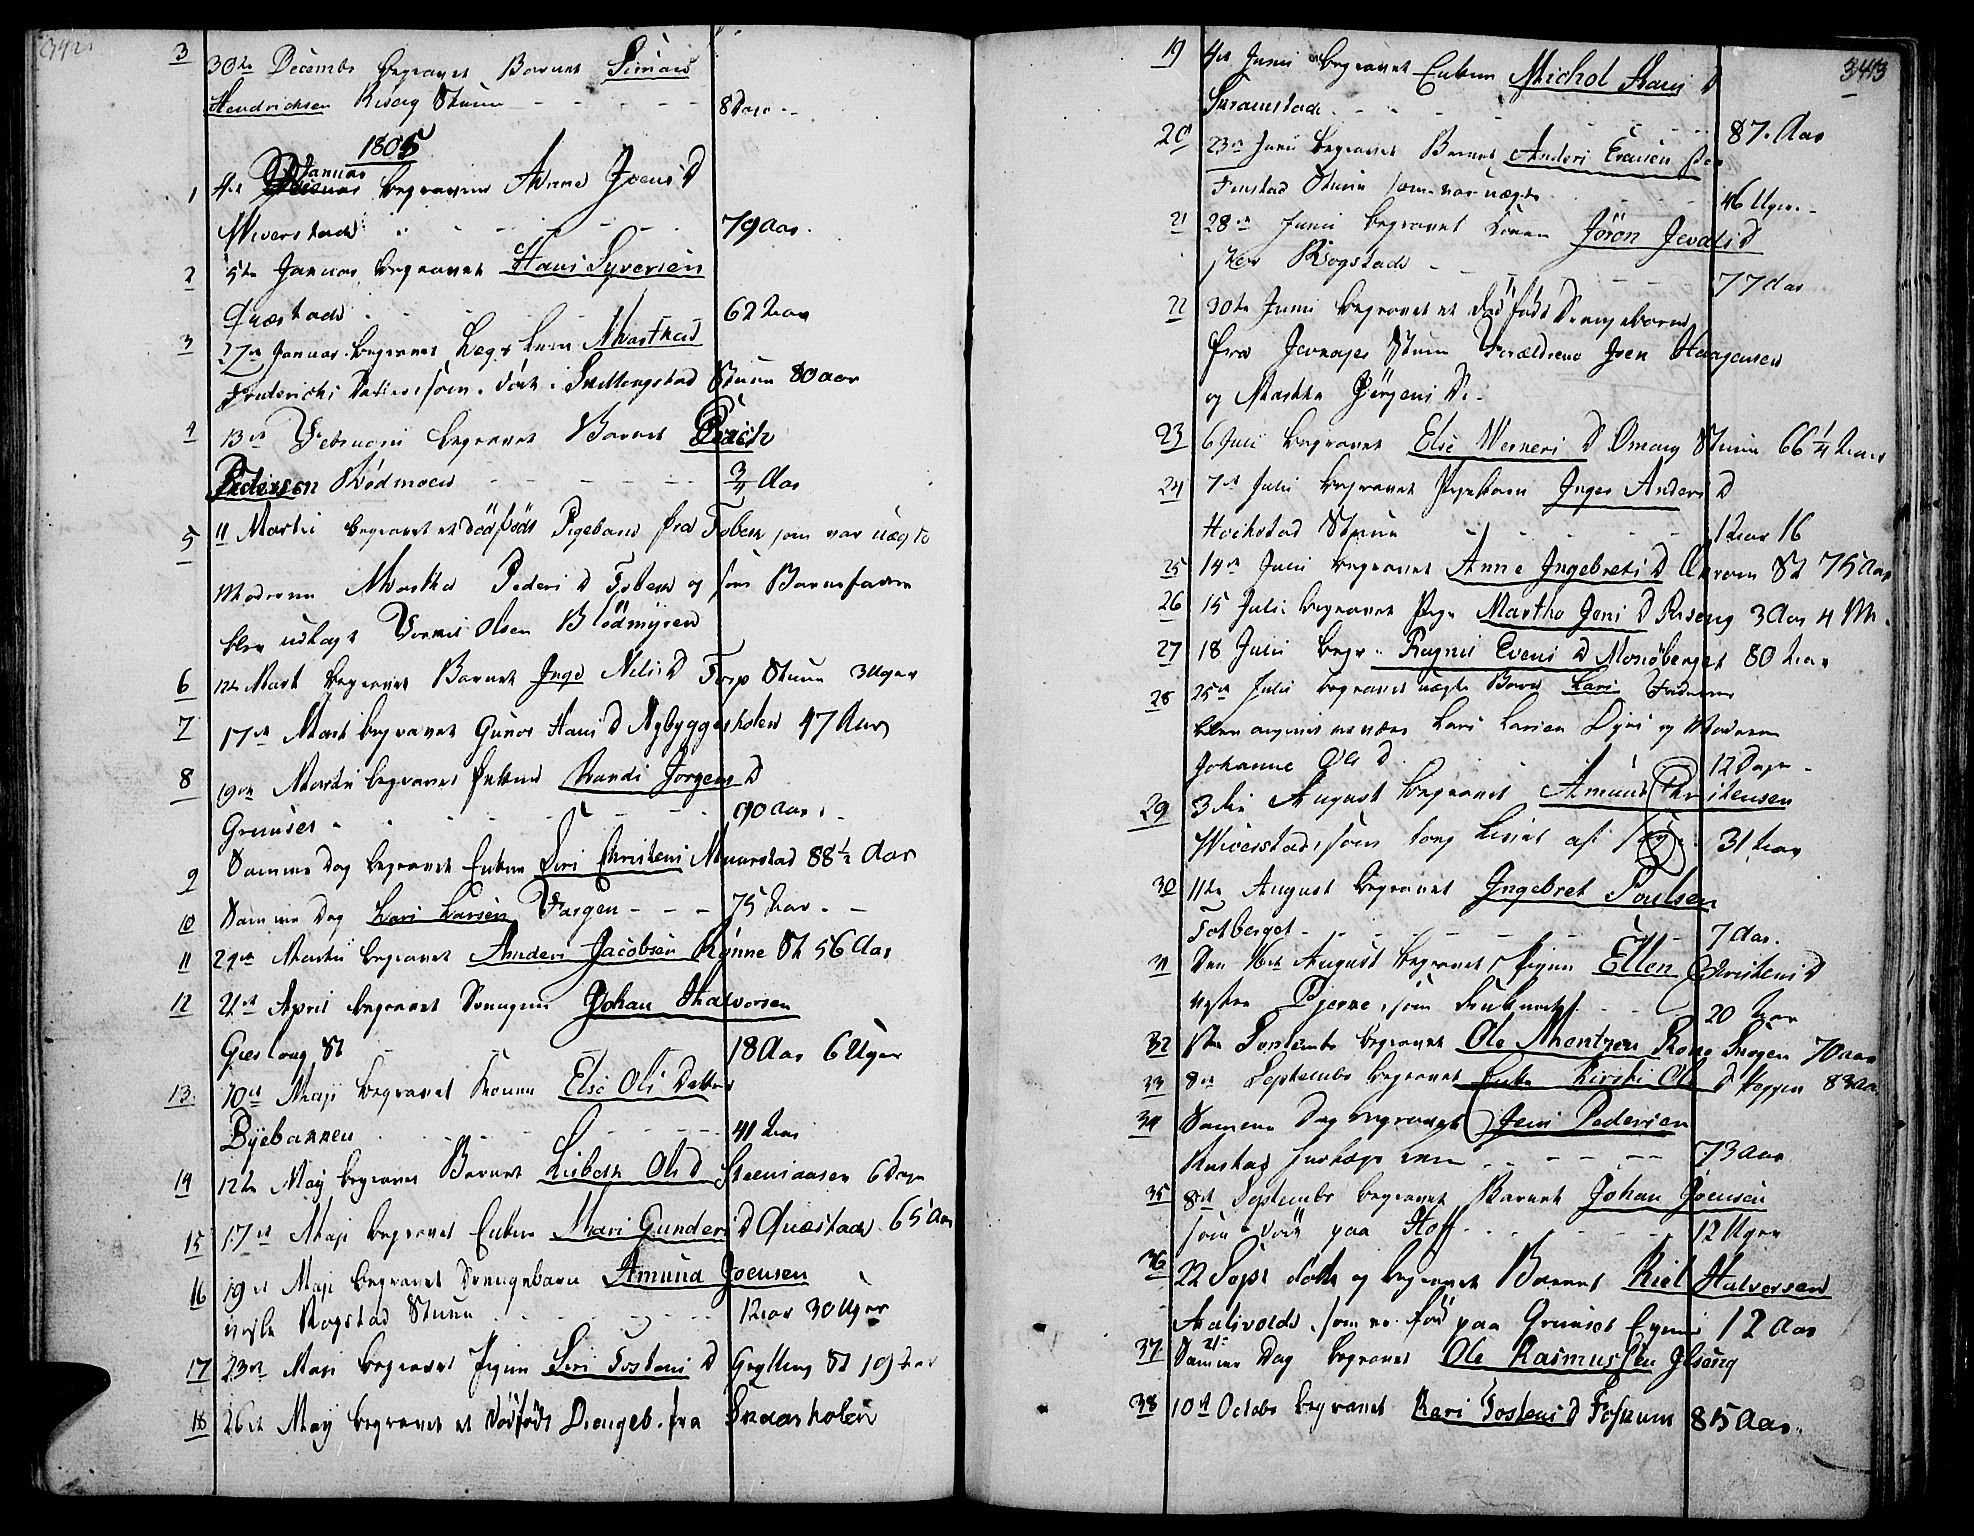 342.
3 30te Decembr begravet Barnet Simen
Hendrichsen Riseng Stuen 8 Dage
1805
1 4de Januar begraven Anne Joens D
Wiverstad 79 Aar.
2 5te Januar begravet Hans Syversen
Quæstad 62 Aar
3 27de Januar begravet Lægs Lem Marthe
Frederichs Datter som døde i Snillingstad Stuen 80 Aar
4 13de Februarii begravet Barnet
Pedersen Rödmoen 3/4 Aar
5 11 Martii begravet et dödfödt Pigebarn fra Foben som var uægte
Moderen Martha Peders D Foben og som Barnefader
blev udlagt Olsen Blödmyren
6 12te Mart begravet Barnet Inge Nils D Torp Stuen 3 Uger
7 17de Mart begravet Gunor Hans D Nybyggerholen 47 Aar
8 19de Martii begravet Enken Randi Jorgens D
Grunset 90 Aar.
9 Samme Dag begravet Enken Siri Christens Muurstad 88 1/2 Aar
10 Samme Dag Lars Larsen Vargen 75 Aar
11 24de Martii begravet Anders Jacobsen Rönne St 56 Aar
12 21de April begravet Drengen Johan Halvorsen
Gieslaug St 18 Aar 6 Uger
13. 10de Maji begravet Konen Else Ols Datter
Byebakken 41 Aar
14 12te Maij begravet Barnet Lisbeth Ols D Steensaasen 6 Dage
15 17de Maji begravet Enken Mari Gunders D Quæstad 65 Aar
16 19de Maji begravet Drengebarn Amund Joensen
Rogstad Stuen 1 Aar 30 Uger
17 23de Maji begravet Pigen Siri Tostens D Grylling St 19 Aar
18 26de Maij begravet et dödfödt Drengeb. fra Snaarholen
343
19 4de Junii begravet Enken Michol Hans D
Skramstad 87. Aar
20 23de Junii begravet Barnet Anders Evensen
Finstad Stuen som var uægte 46 Uger.
21 28de Junii begravet Konen Jörön D
Rogstad 77 Aar
22 30te Junii begravet et dödfödt Drengebarn
fra Stuen Forældrene Joen Haagensen
og Martha Jörgens D.
23 6 Julii begravet Else Werners D Omang Stuen 66 1/4 Aar
24 7de Julii begravet Pigebarn Inger Anders D
Hochstad Stuen 1 Aar 16
25 14de Julii begravet Anne Ingebrets D St 75 Aar
26 15 Julii begravet Pige Martha Jens D Riseng 3 Aar 4 M.
27 18 Julii begr. Ragnil Evens D Monöberget 80 Aar
28 25de Julii begravet uægte Barn Lars Faderen
blev angivet at være Lars Larsen Dyre og Moderen
Johanne Ols D. 12 Dage
29 3die August begravet Amund Christensen
Wiverstad, som tog Livet af sig 31 Aar
30 11te August begravet Ingebret Poulsen
Totberget 7 Aar.
31 Den 16de August begravet Pigen Ellen Christens D
Bjerre, som 20 Aar
32 1ste Septembr begravet Ole Mortzen Snogen 70 Aar
33 8de Septembr begravet Enke Kirsti Ols D Hoggen 83 Aar
34 Samme Dag begravet Jens Pedersen
Rustad 73 Aar
35 8de Septembr begravet Barnet Johan Joensen
som døde paa Hoff 12 Uger
36 22 Sept döde og begravet Barnet Kiel Halvorsen
som er föd paa Grunset 12 Aar
37 Samme Dag begravet Ole Rasmussen Ilseng
38 10de Octobr begravet Kari Tostens D Fossum 85 Aar.